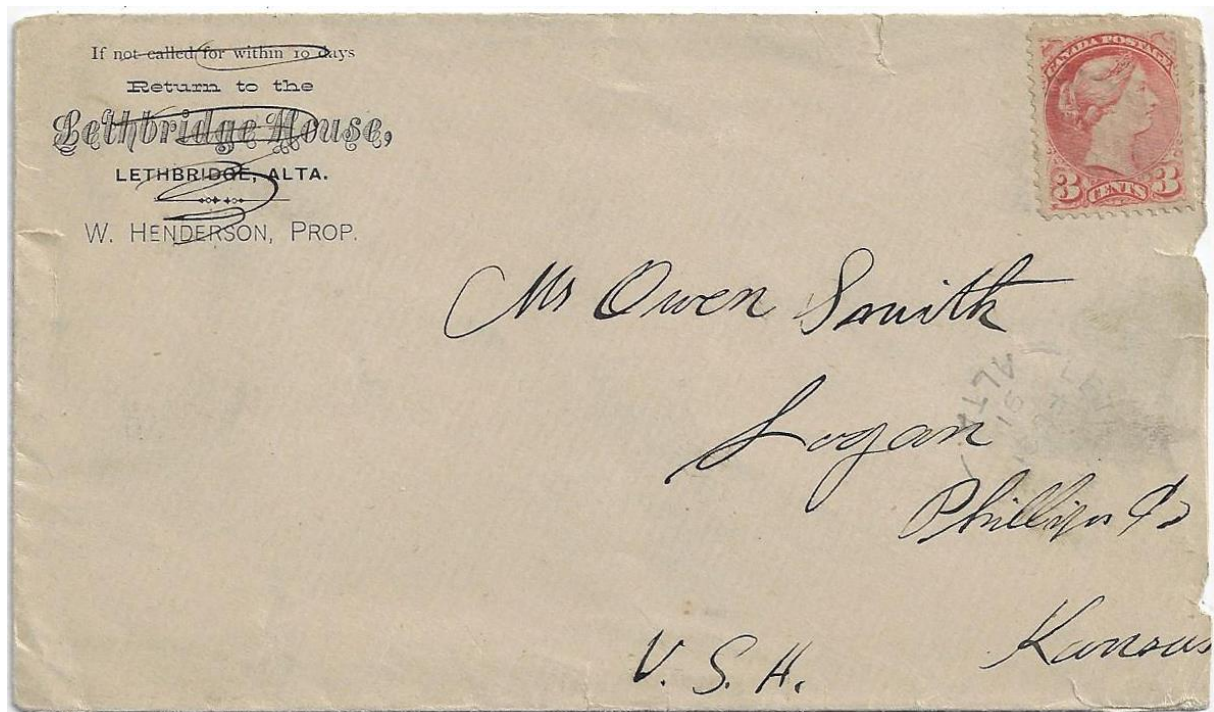 If not called for within 10 days
Return to the
Lethbridge House,
LETHBRIDGE, ALTA.
W. HENDERSON, PROP.
CANADA POSTAGE
3 CENTS 3
Mr Owen Smith
Logan
Phillips Co
Kansas
U.S.A.
ALTA